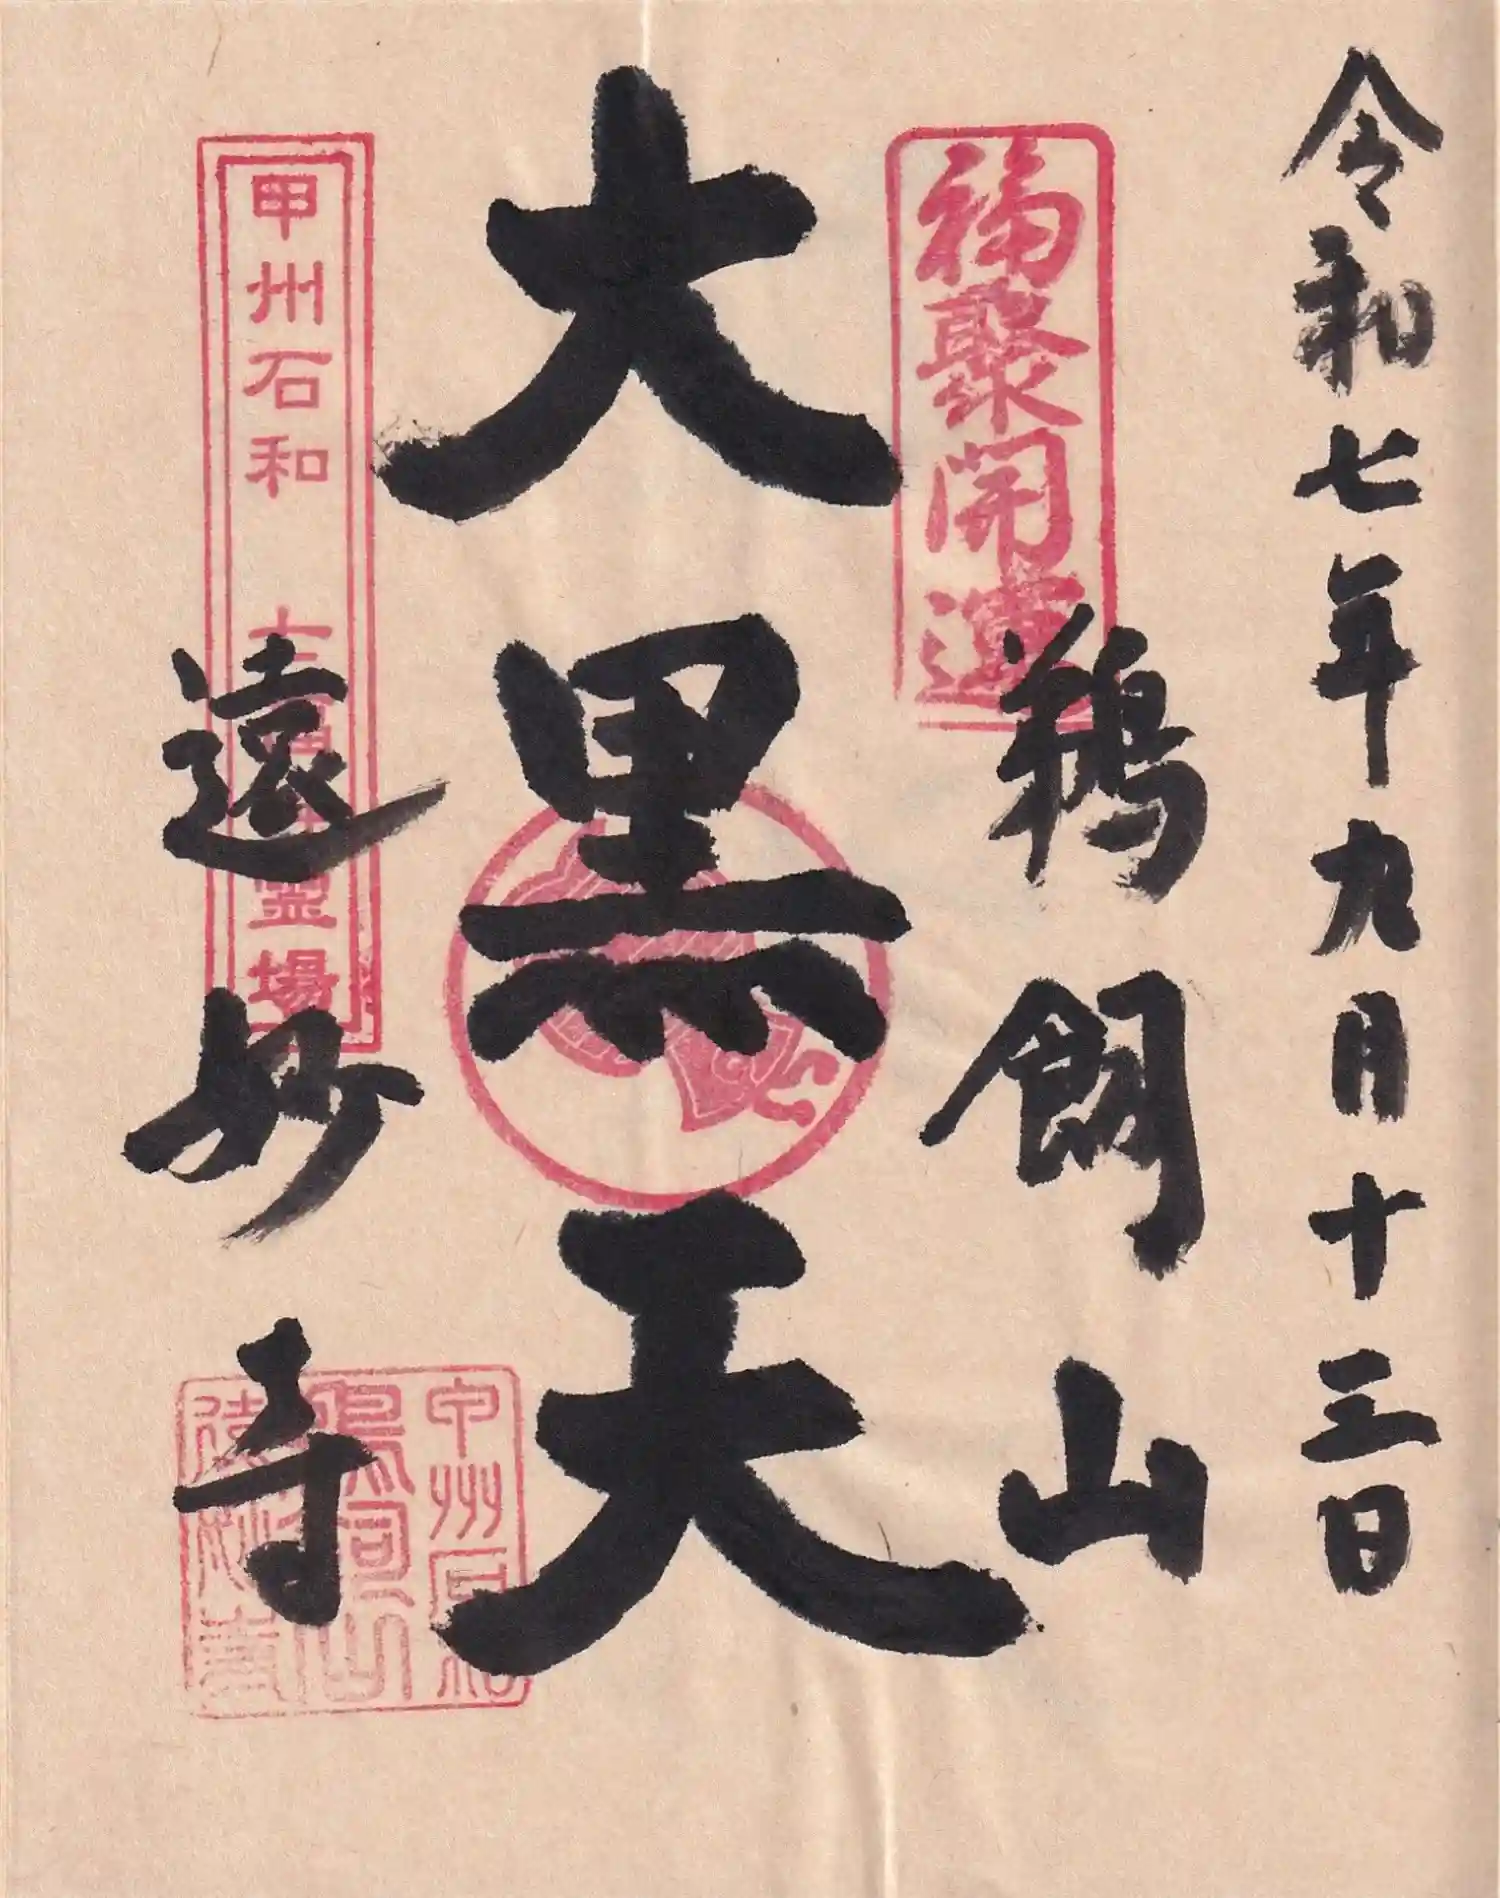 令和七年九月十三日
福聚開運
鵜飼山
大黒天
甲州石和 七福神霊場
遠妙寺
甲州石和
鵜飼山
遠妙寺